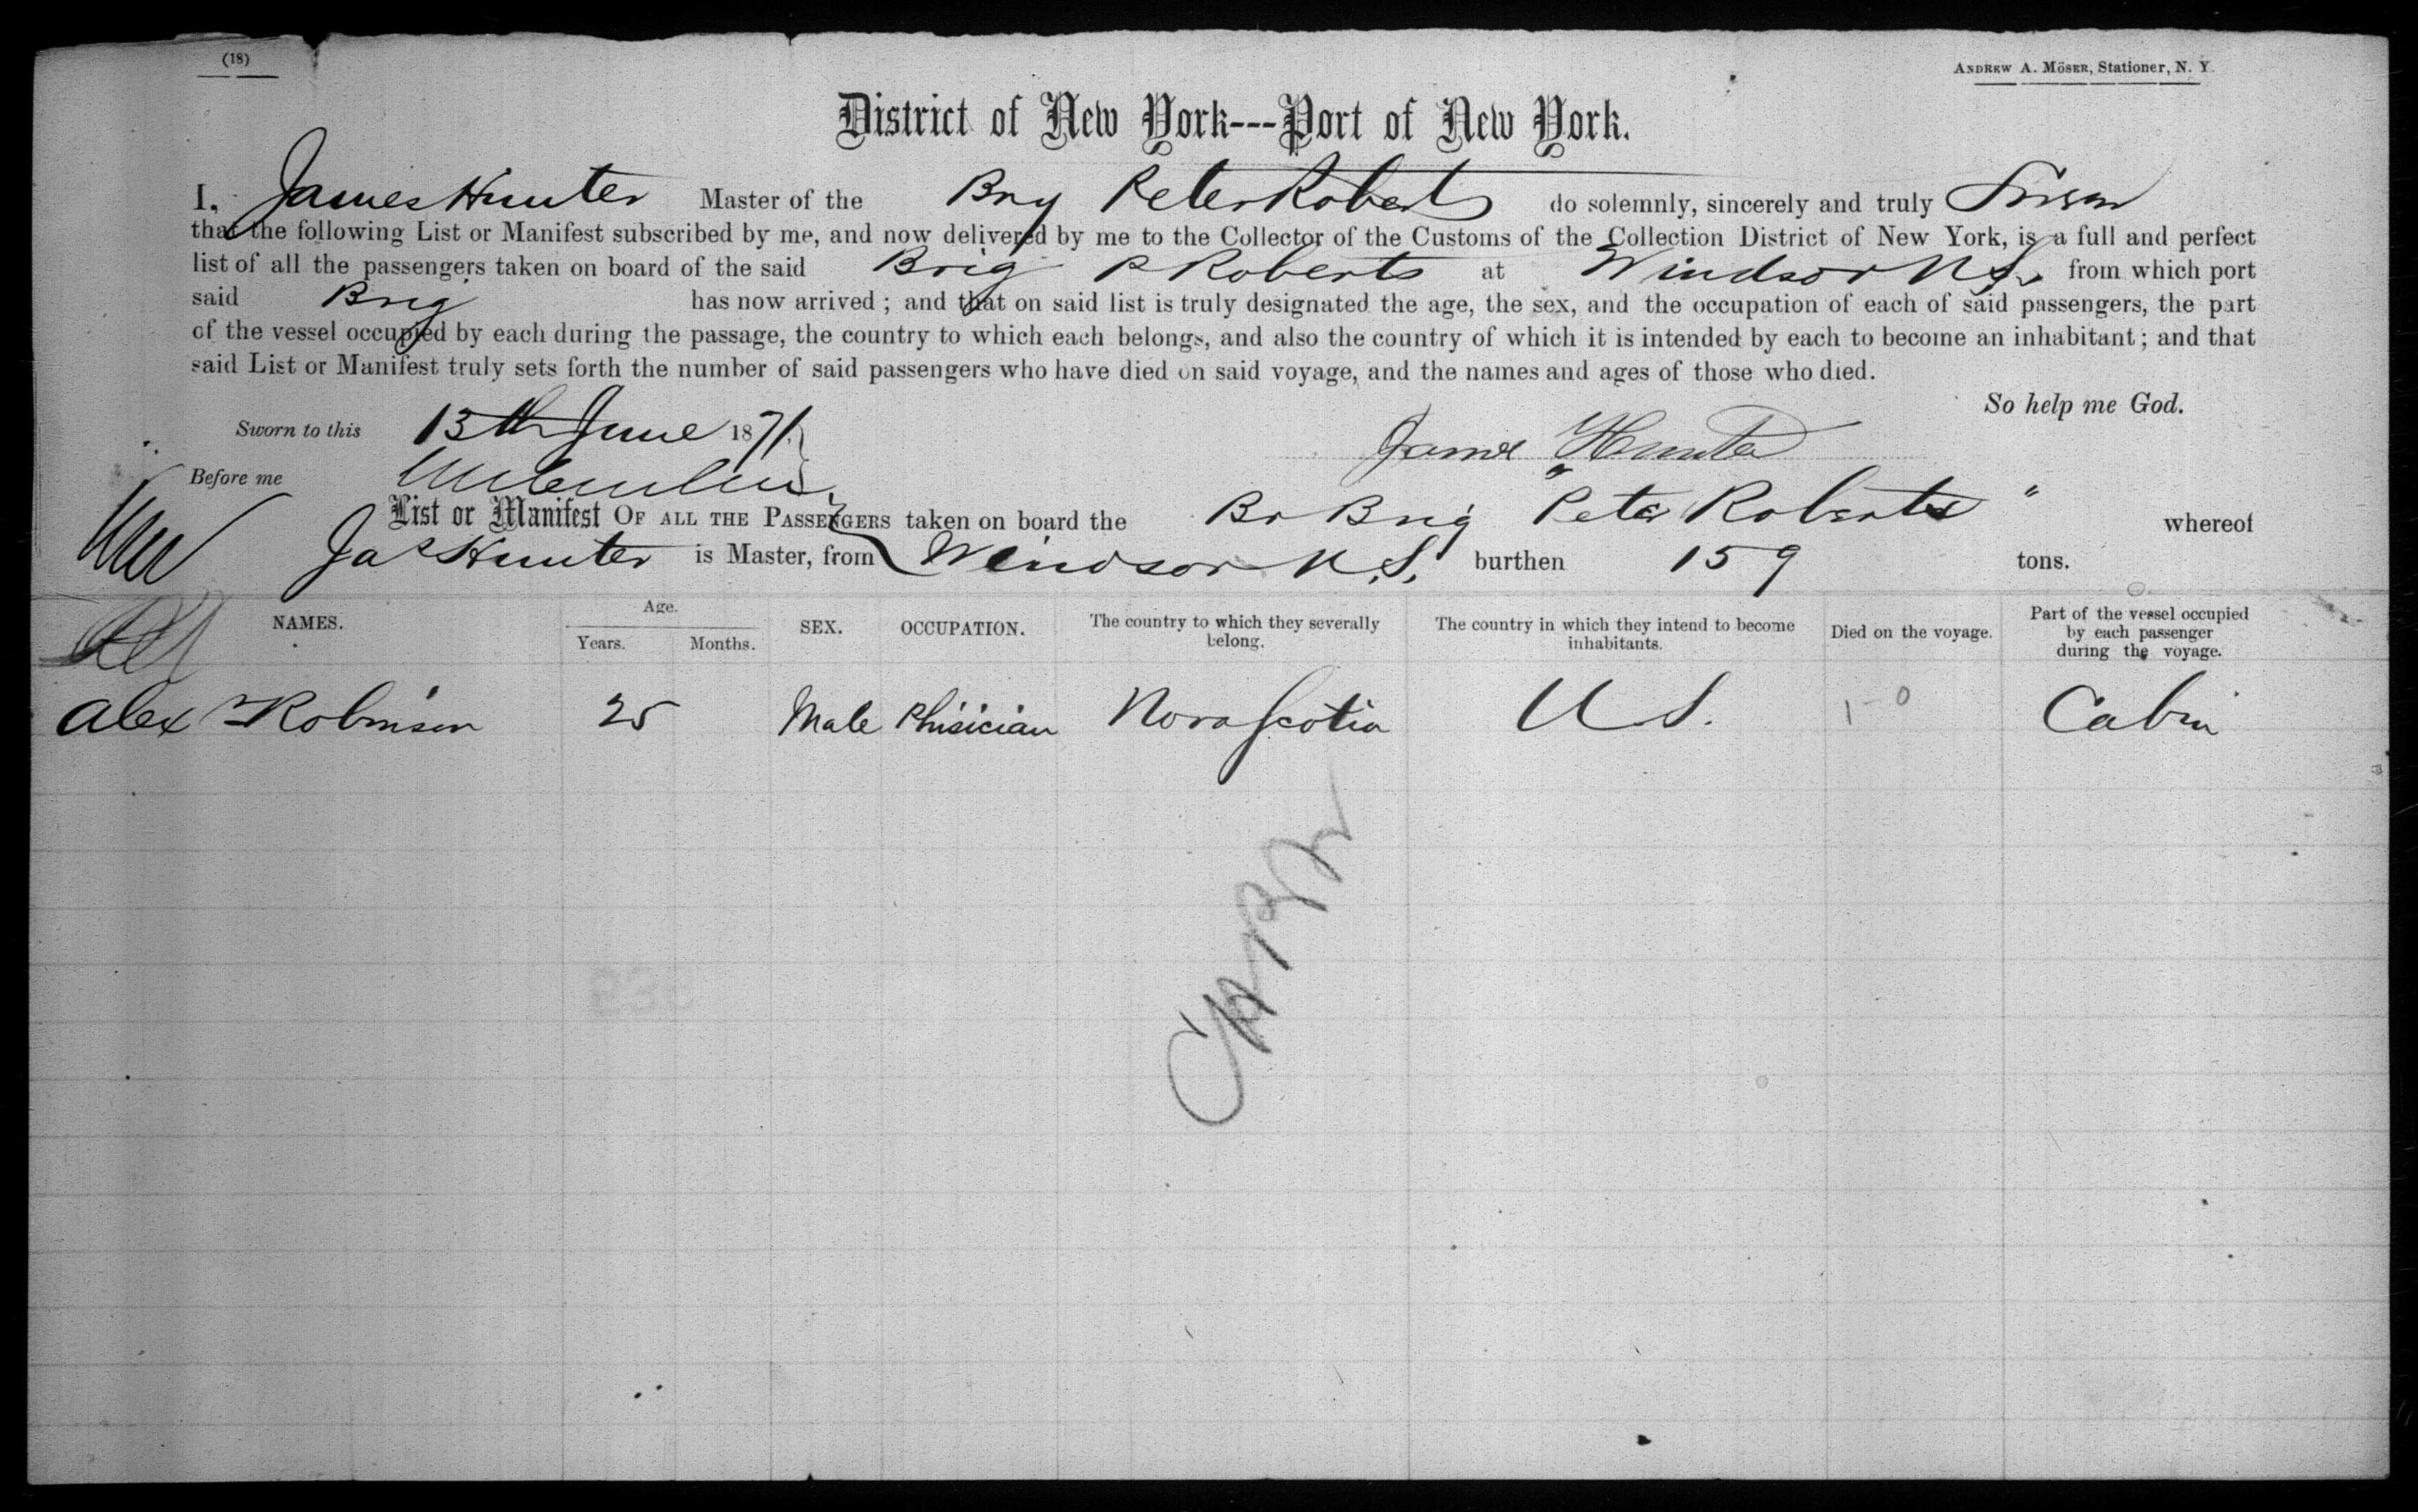 (18)
ANDREW A. MÖSER, Stationer, N. Y.
District of New York---Port of New York.
I, James Hunter Master of the Brig Peter Roberts do solemnly, sincerely and truly Swear
that the following List or Manifest subscribed by me, and now delivered by me to the Collector of the Customs of the Collection District of New York, is a full and perfect
list of all the passengers taken on board of the said Brig P Roberts at Windsor N S. from which port
said Brig has now arrived; and that on said list is truly designated the age, the sex, and the occupation of each of said passengers, the part
of the vessel occupied by each during the passage, the country to which each belongs, and also the country of which it is intended by each to become an inhabitant; and that
said List or Manifest truly sets forth the number of said passengers who have died on said voyage, and the names and ages of those who died.
So help me God.
Sworn to this 13th June 1871.
James Hunter
Before me
List or Manifest OF ALL THE PASSENGERS taken on board the Br Brig "Peter Roberts" whereof
Jas Hunter is Master, from Windsor N.S. burthen 159 tons.
NAMES. Age. Years. Months. SEX. OCCUPATION. The country to which they severally belong. The country in which they intend to become inhabitants. Died on the voyage. Part of the vessel occupied by each passenger during the voyage.
Alex Robinson 25 Male Phisician Nova Scotia U S. 1-0 Cabin